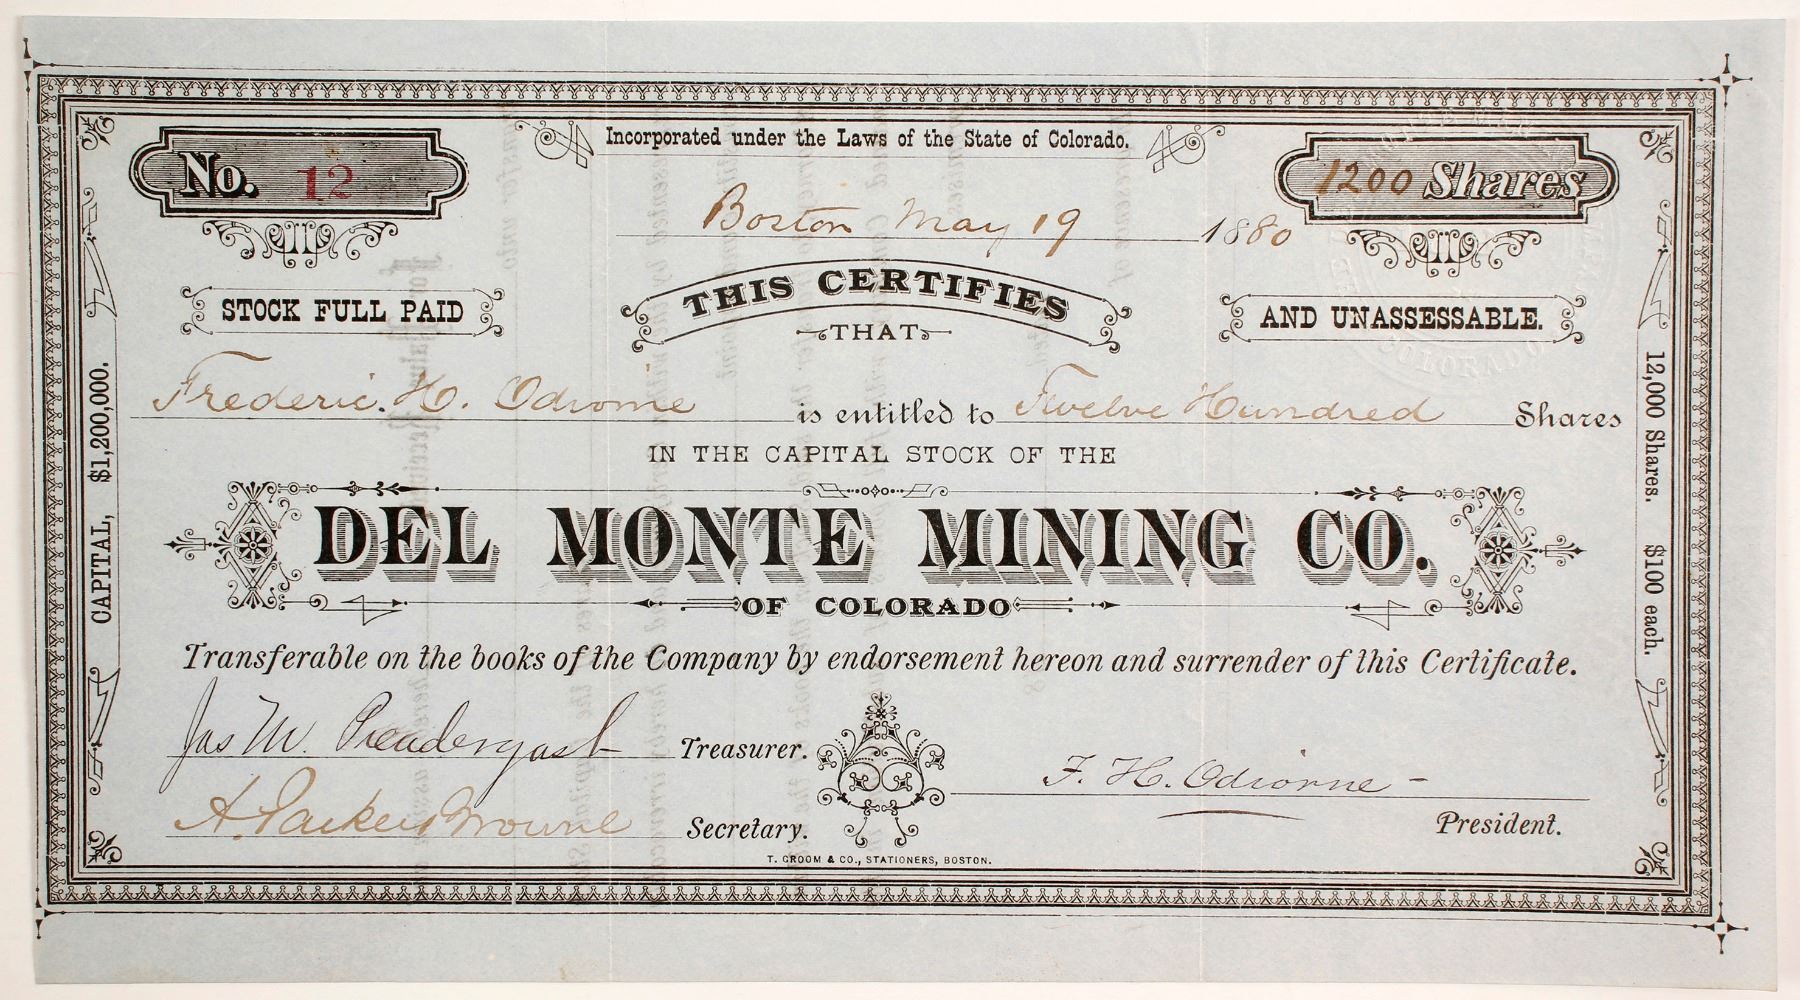 Incorporated under the Laws of the State of Colorado.
No. 12
1200 Shares
Boston May 19 1880
STOCK FULL PAID
THIS CERTIFIES
THAT
AND UNASSESSABLE.
Frederic. H. Odiorne is entitled to Twelve Hundred Shares
IN THE CAPITAL STOCK OF THE
DEL MONTE MINING CO.
OF COLORADO
Transferable on the books of the Company by endorsement hereon and surrender of this Certificate.
Jas M. Prendergast Treasurer.
A. Parker Browne Secretary.
F. H. Odiorne President.
T. GROOM & CO., STATIONERS, BOSTON.
CAPITAL, $1,200,000.
12,000 Shares. $100 each.
COLORADO